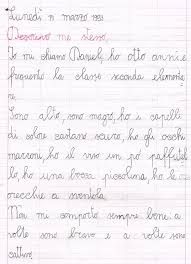 Lunedì 11 marzo 1991
Descrivo me stesso.
Io mi chiamo Daniele, ho otto anni e
frequento la classe seconda elementa
re.
Sono alto, sono magro, ho i capelli
di colore castano scuro, ho gli occhi
marroni, ho il viso un po' paffutel
lo, ho una bocca piccolina, ho le
orecchie a sventola.
Non mi comporto sempre bene, a
volte sono bravo e a volte sono
cattivo.